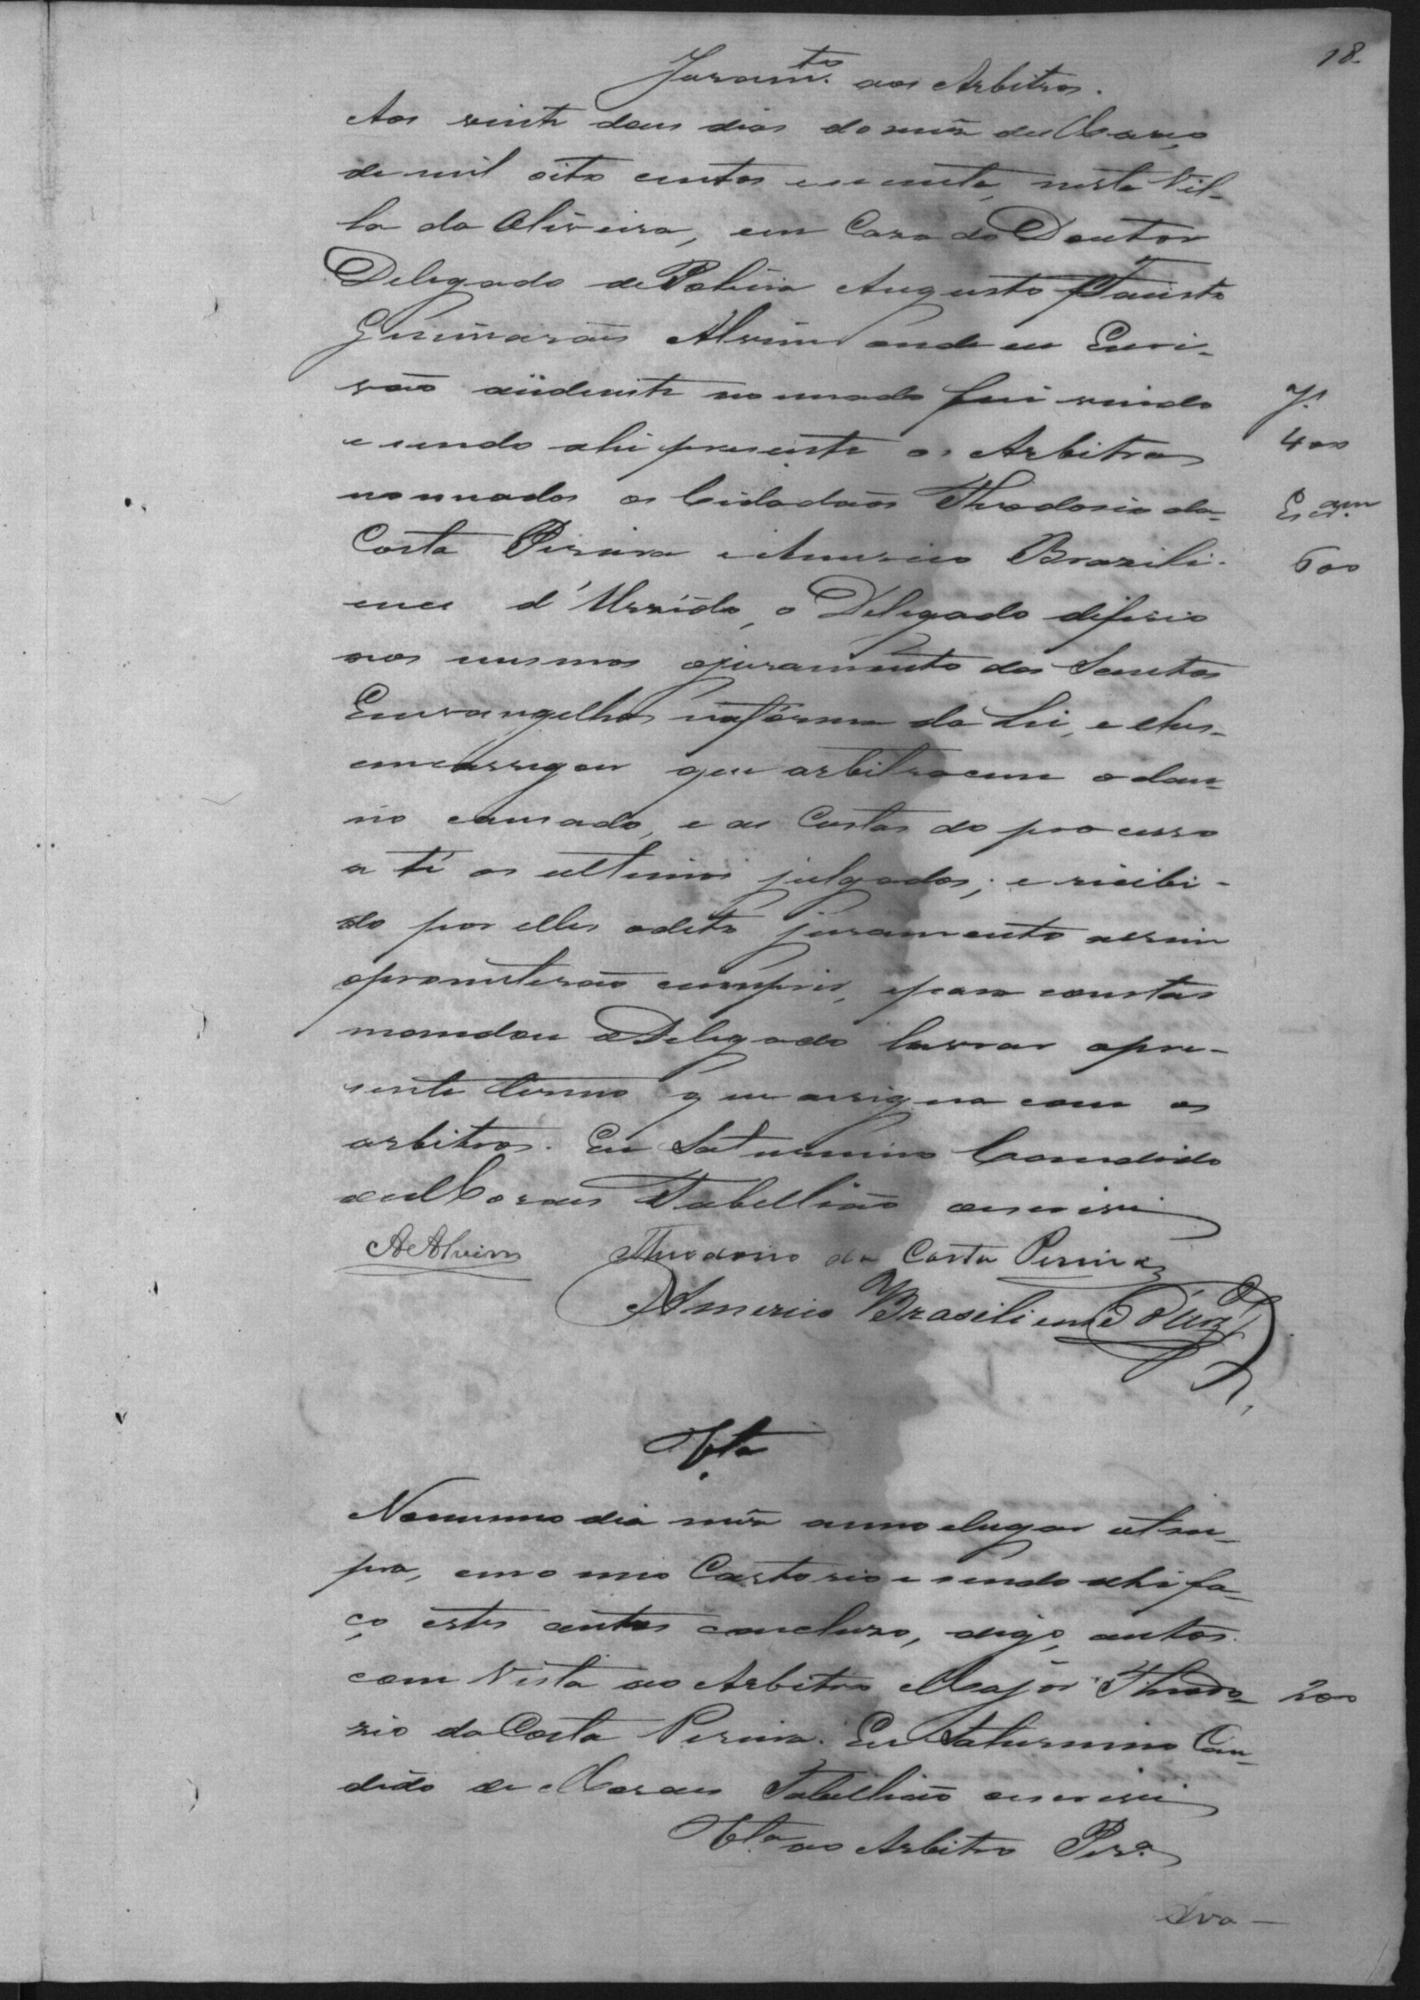 18.
Juram.to aos Arbitros.
Aos vinte dous dias do mês de Março
de mil oito centos e noventa, nesta Vil-
la da Oliveira, em Caza do Doutor
Delegado de Policia Augusto Fausto
Guimarães Alvim onde eu Escri-
vão adiante nomeado fui vindo
e sendo ahi presente os Arbitros
nomeados os Cidadãos Theodosio da
Costa Pereira e Americo Brazili-
ence d'
, o Delegado deferio
aos mesmos o juramento dos Santos
Envangelhos na fórma da Lei, e lhes
emcarregou que arbitracem o dam-
no causado, e as Custas do processo
a té os ultimos julgados; e recibi-
do por elles o dito juramento assim
o prometerão cumprir, e para constar
mandou o Delegado lavrar o pre-
sente termo que assigna com os
arbitros. Eu Saturnino Candido
de Moraes Tabellião o escrivi
A Alvim Theodosio da Costa Pereira
Americo Brasiliense
J.
400
Escr.am
600
V.ta
No mesmo dia mês anno e lugar ut su-
pra, em o meo Cartorio e sendo ahi fa-
ço estes autos concluzo, digo, autos
com Vista ao Arbitro Major Theodo-
zio da Costa Pereira. Eu Saturnino Can-
dido de Moraes Tabellião o escrivi
200
V.ta ao Arbitro Per.a